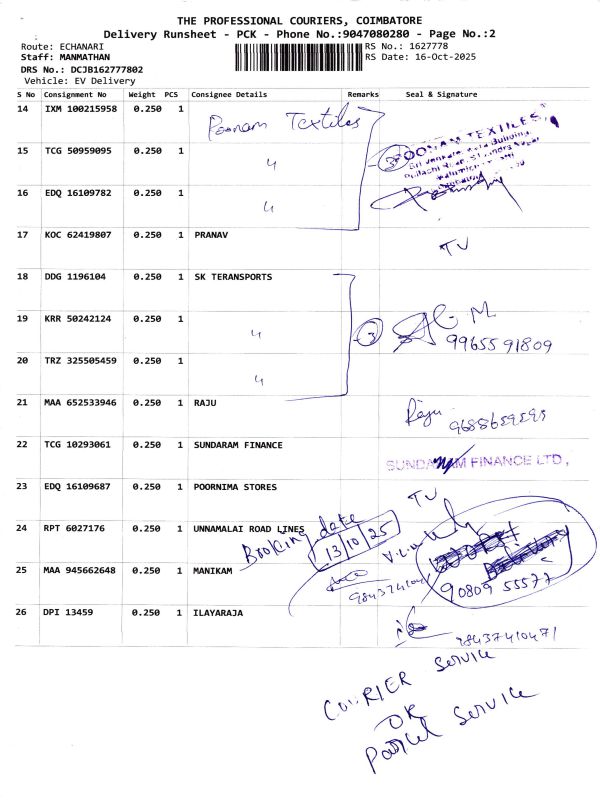 THE PROFESSIONAL COURIERS, COIMBATORE
Delivery Runsheet - PCK - Phone No.:9047080280 - Page No.:2
Route: ECHANARI RS No.: 1627778
Staff: MANMATHAN RS Date: 16-Oct-2025
DRS No.: DCJB162777802
Vehicle: EV Delivery
S No Consignment No Weight PCS Consignee Details Remarks Seal & Signature
14 IXM 100215958 0.250 1 Poonam Textiles
POONAM TEXTILES,
15 TCG 50959095 0.250 1 " 3
16 EDQ 16109782 0.250 1 "
17 KOC 62419807 0.250 1 PRANAV TV
18 DDG 1196104 0.250 1 SK TERANSPORTS
19 KRR 50242124 0.250 1 " 3
99655 91809
20 TRZ 325505459 0.250 1 "
21 MAA 652533946 0.250 1 RAJU Raju
22 TCG 10293061 0.250 1 SUNDARAM FINANCE SUNDARAM FINANCE LTD,
23 EDQ 16109687 0.250 1 POORNIMA STORES TV
24 RPT 6027176 0.250 1 UNNAMALAI ROAD LINES
Booking date
13/10/25
25 MAA 945662648 0.250 1 MANIKAM
90809 55577
26 DPI 13459 0.250 1 ILAYARAJA
98437410471
COURIER Service
OR
Parcel Service